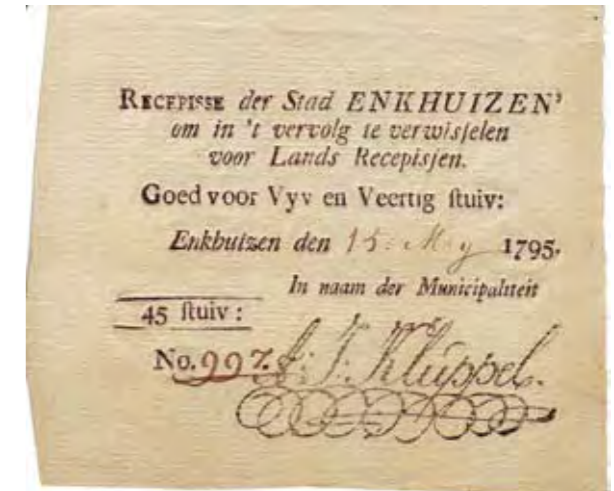 RECEPISSE der Stad ENKHUIZEN'
om in 't vervolg te verwisselen
voor Lands Recepisjen.
Goed voor Vyv en Veertig ſtuiv:
Enkhuizen den 15: My 1795.
In naam der Municipaliteit
45 ſtuiv:
No. 997. J: Kluppel.